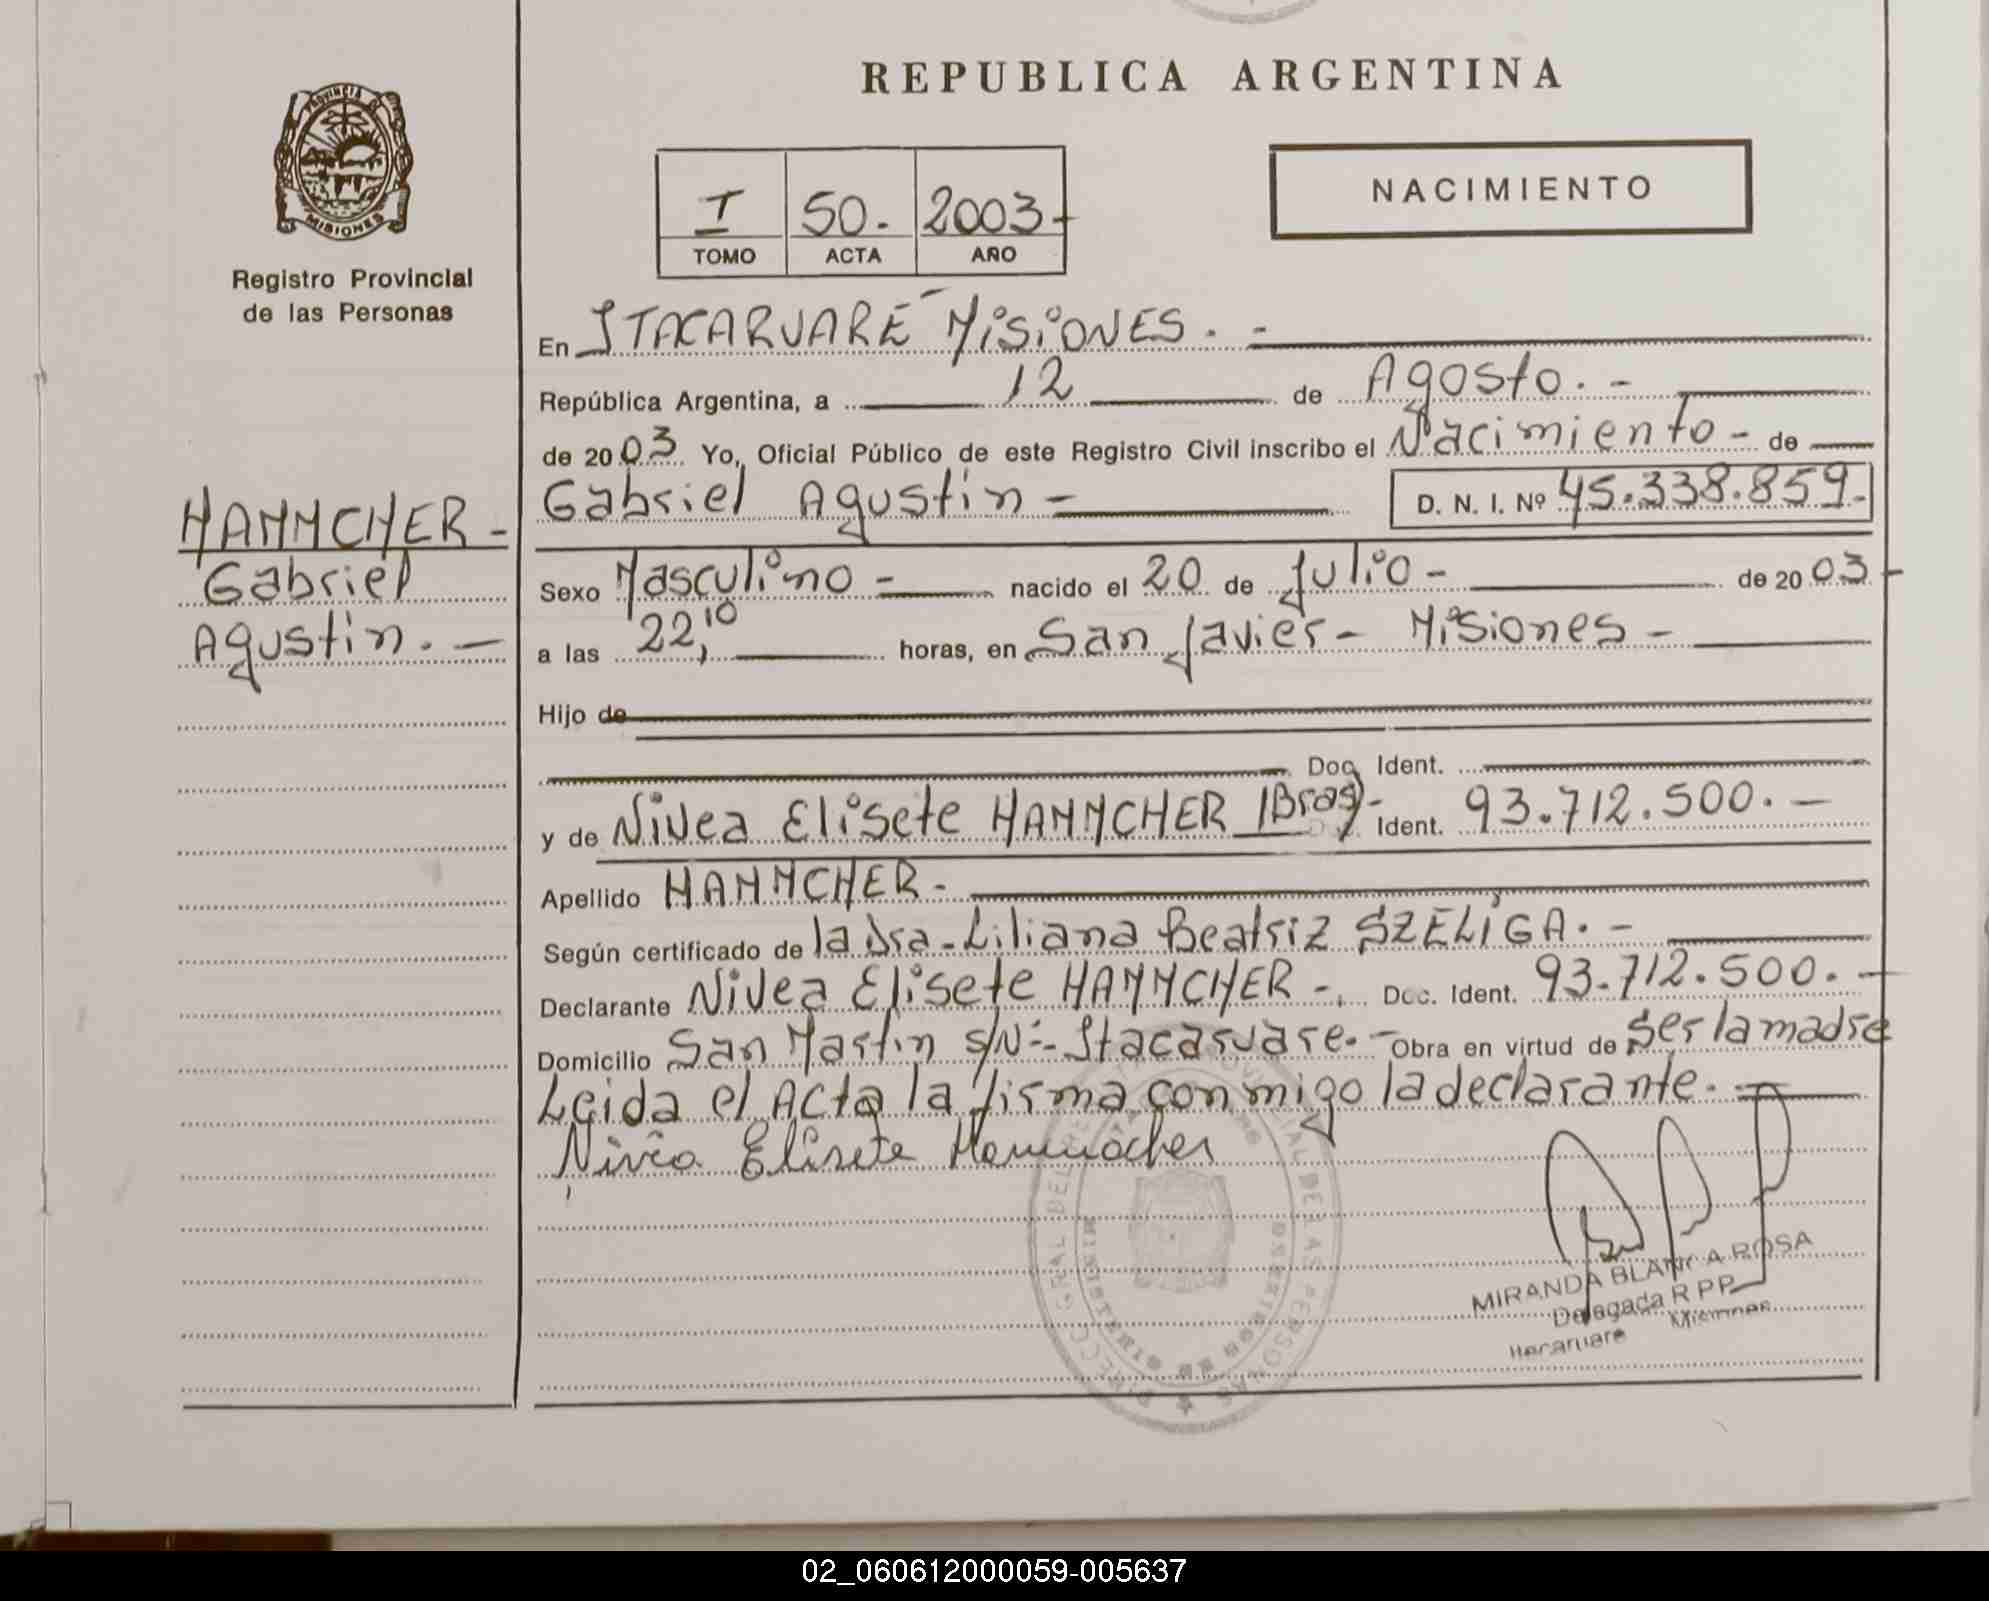 REPUBLICA ARGENTINA
PROVINCIA DE
MISIONES
Registro Provincial
de las Personas
I 50.- 2003-
TOMO ACTA AÑO
NACIMIENTO
En ITACARUARE - MISIONES. -
República Argentina, a 12 de Agosto. -
de 2003 Yo, Oficial Público de este Registro Civil inscribo el Nacimiento - de
Gabriel Agustin - D. N. I. Nº 45.338.859.-
HAMMCHER -
Gabriel
Agustin. -
Sexo Masculino - nacido el 20 de Julio - de 2003 -
a las 22,10 horas, en San Javier - Misiones -
Hijo de
Doc. Ident.
y de Nivea Elisete HAMMCHER (Bras)- Ident. 93.712.500. -
Apellido HAMMCHER -
Según certificado de la Dra - Liliana Beatriz SZELIGA. -
Declarante Nivea Elisete HAMMCHER -. Doc. Ident. 93.712.500. -
Domicilio San Martin s/Nº - Itacaruare. - Obra en virtud de ser la madre
Leida el Acta la firma conmigo la declarante. -
Nivea Elisete Hammcher
MIRANDA BLANCA ROSA
Delegada R P P
Itacaruare Misiones
02_060612000059-005637